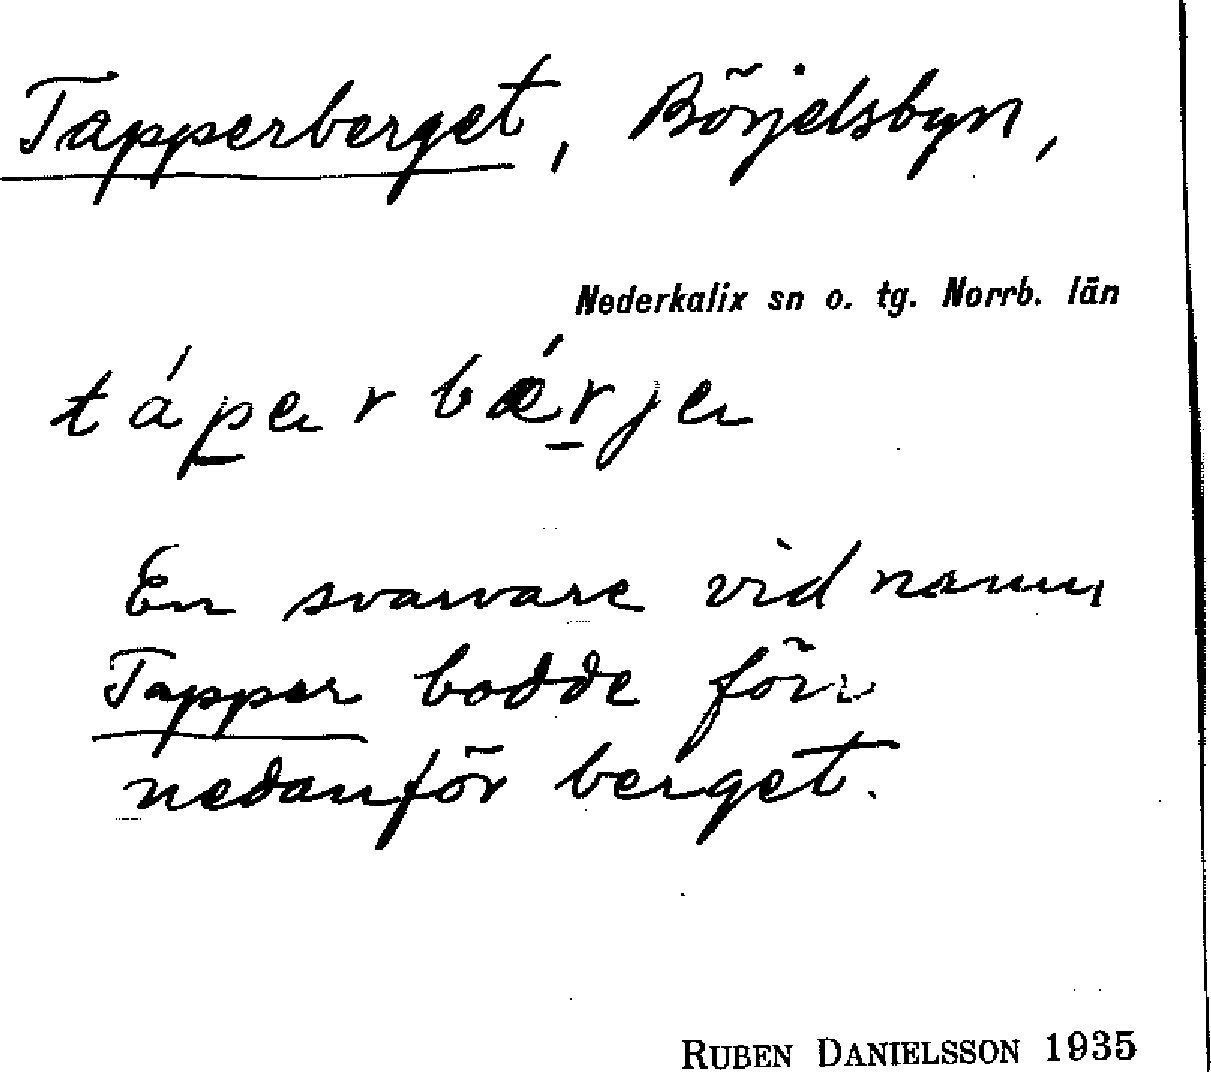 Tapperberget, Börjelsbyn,
Nederkalix sn o. tg. Norrb. län
táperbǽrje
En svarvare vid namn
Tapper bodde förr
nedanför berget.
RUBEN DANIELSSON 1935